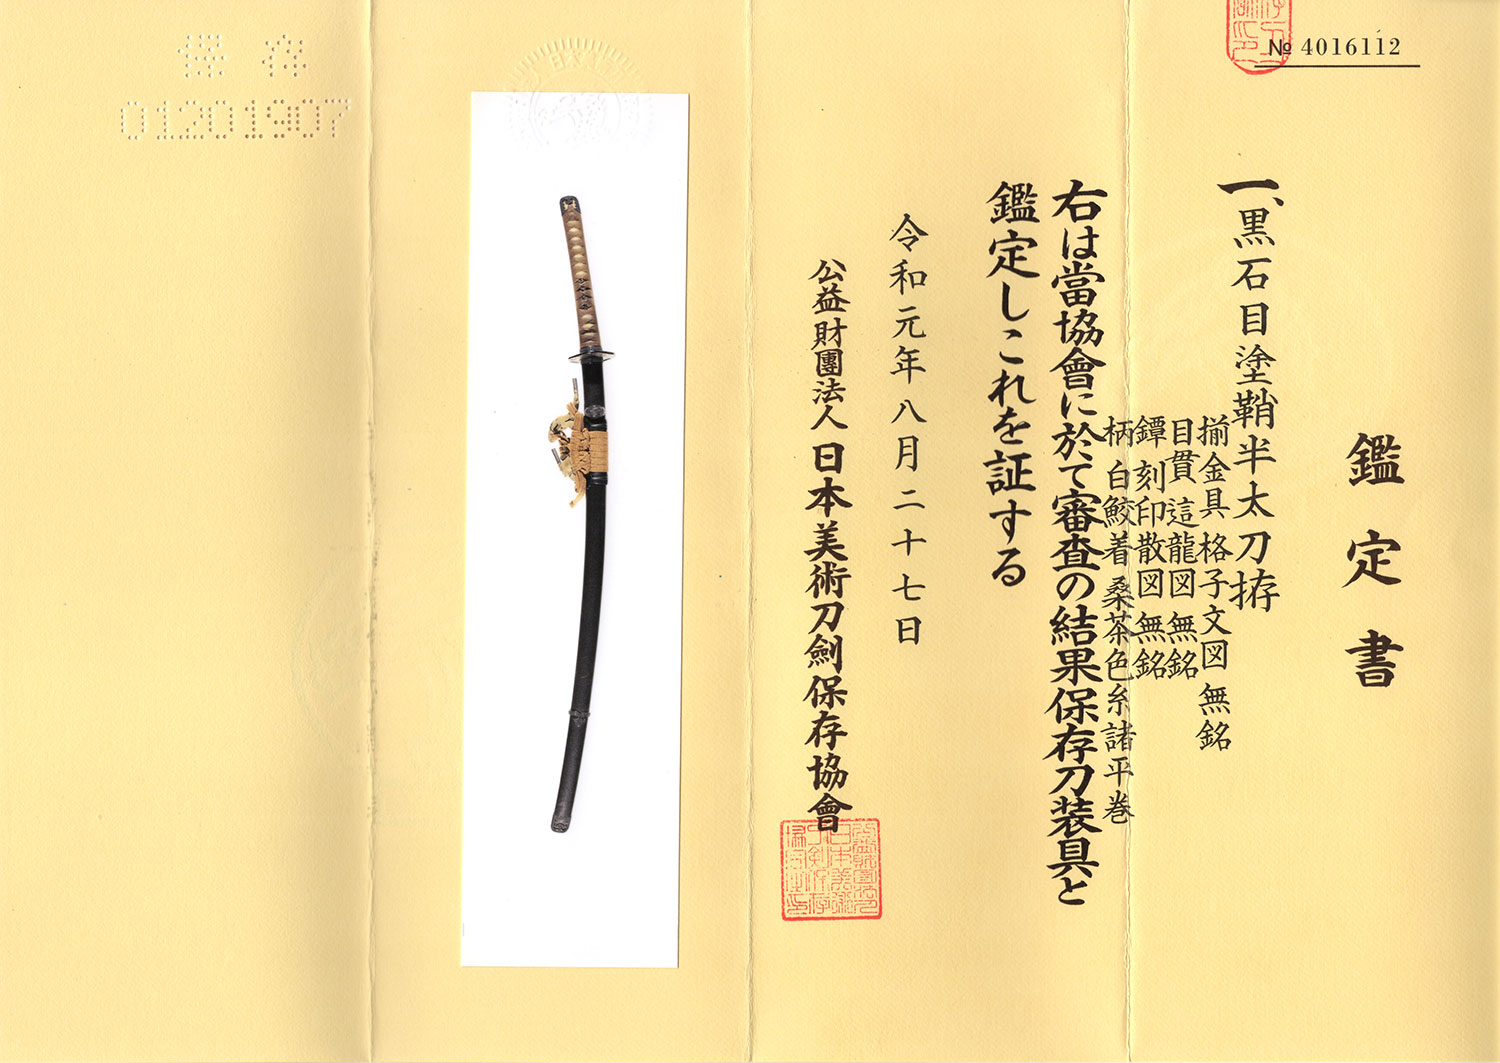 № 4016112
鑑定書
一、黒石目塗鞘半太刀拵
揃金具 格子文図 無銘
目貫 這龍図 無銘
鐔 刻印散図 無銘
柄 白鮫着 桑茶色糸諸平巻
右は當協會に於て審査の結果保存刀装具と
鑑定しこれを証する
令和元年八月二十七日
公益財團法人 日本美術刀劍保存協會
保存
01201907